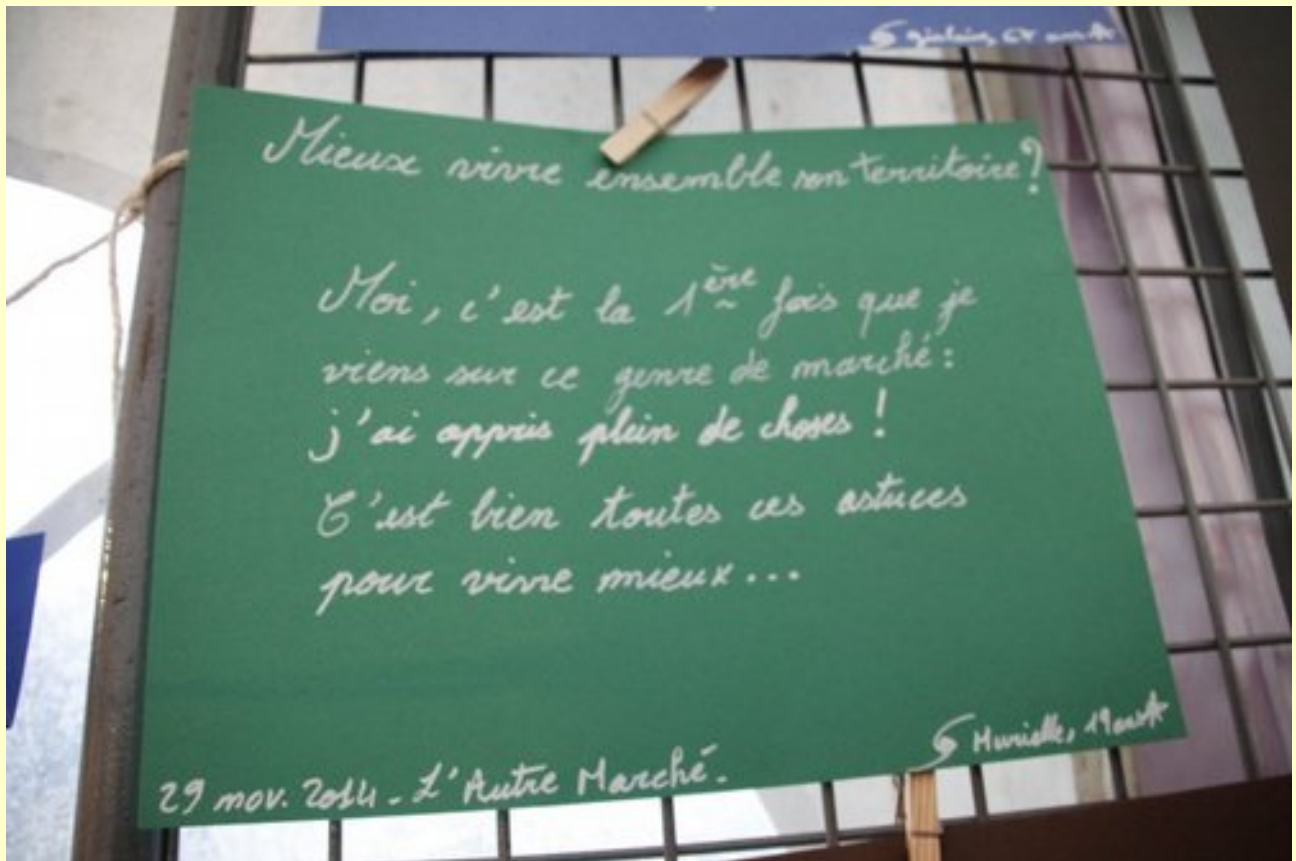 67 ans
Mieux vivre ensemble son territoire?
Moi, c'est la 1ère fois que je
viens sur ce genre de marché:
j'ai appris plein de choses !
C'est bien toutes ces astuces
pour vivre mieux...
Murielle, 19 ans
29 nov. 2014 - L'Autre Marché.